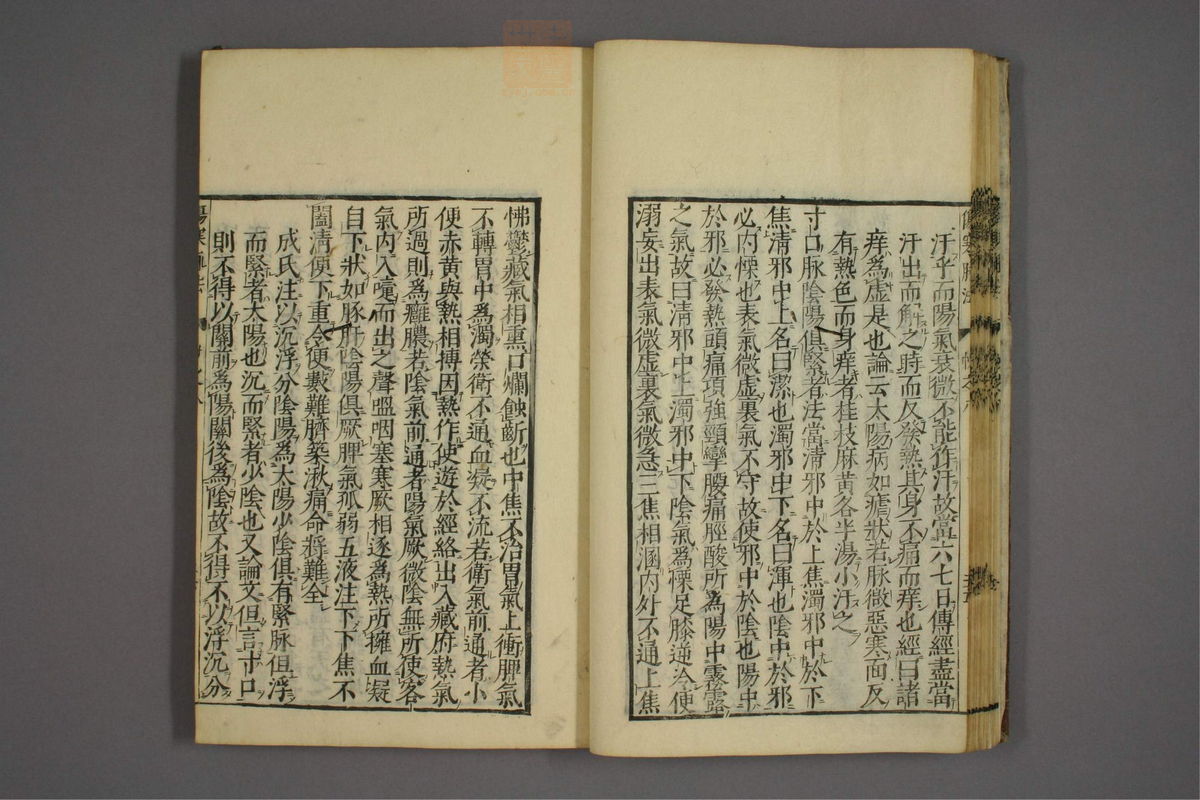 汗乎而陽氣衰微不能作汗故當六七日傳經盡當
汗出而解之時而反發熱其身不痛而痒也經曰諸
痒為虛是也論云太陽病如瘧狀若脉微惡寒面反
有熱色而身痒者桂枝麻黃各半湯小汗之
寸口脉陰陽俱緊者法當淸邪中於上焦濁邪中於下
焦淸邪中上名曰潔也濁邪中下名曰渾也陰中於邪
必內慄也表氣微虛裏氣不守故使邪中於陰也陽中
於邪必發熱頭痛項強頸攣腰痛脛酸所為陽中霧露
之氣故曰淸邪中上濁邪中下陰氣為慄足膝逆冷便
溺妄出表氣微虛裏氣微急三焦相溷內外不通上焦
怫鬱藏氣相熏口爛蝕齗也中焦不治胃氣上衝脾氣
不轉胃中為濁榮衛不通血凝不流若衛氣前通者小
便赤黃與熱相搏因熱作使遊於經絡出入藏府熱氣
所過則為癰膿若陰氣前通者陽氣厥微陰無所使客
氣內入嚏而出之聲嗢咽塞寒厥相逐為熱所擁血凝
自下狀如豚肝陰陽俱厥脾氣孤弱五液注下下焦不
闔淸便下重令便數難臍築湫痛命將難全
成氏注以沉浮分陰陽為太陽少陰俱有緊脉但浮
而緊者太陽也沉而緊者少陰也又論文但言寸口
則不得以關前為陽關後為陰故不得不以浮沉分